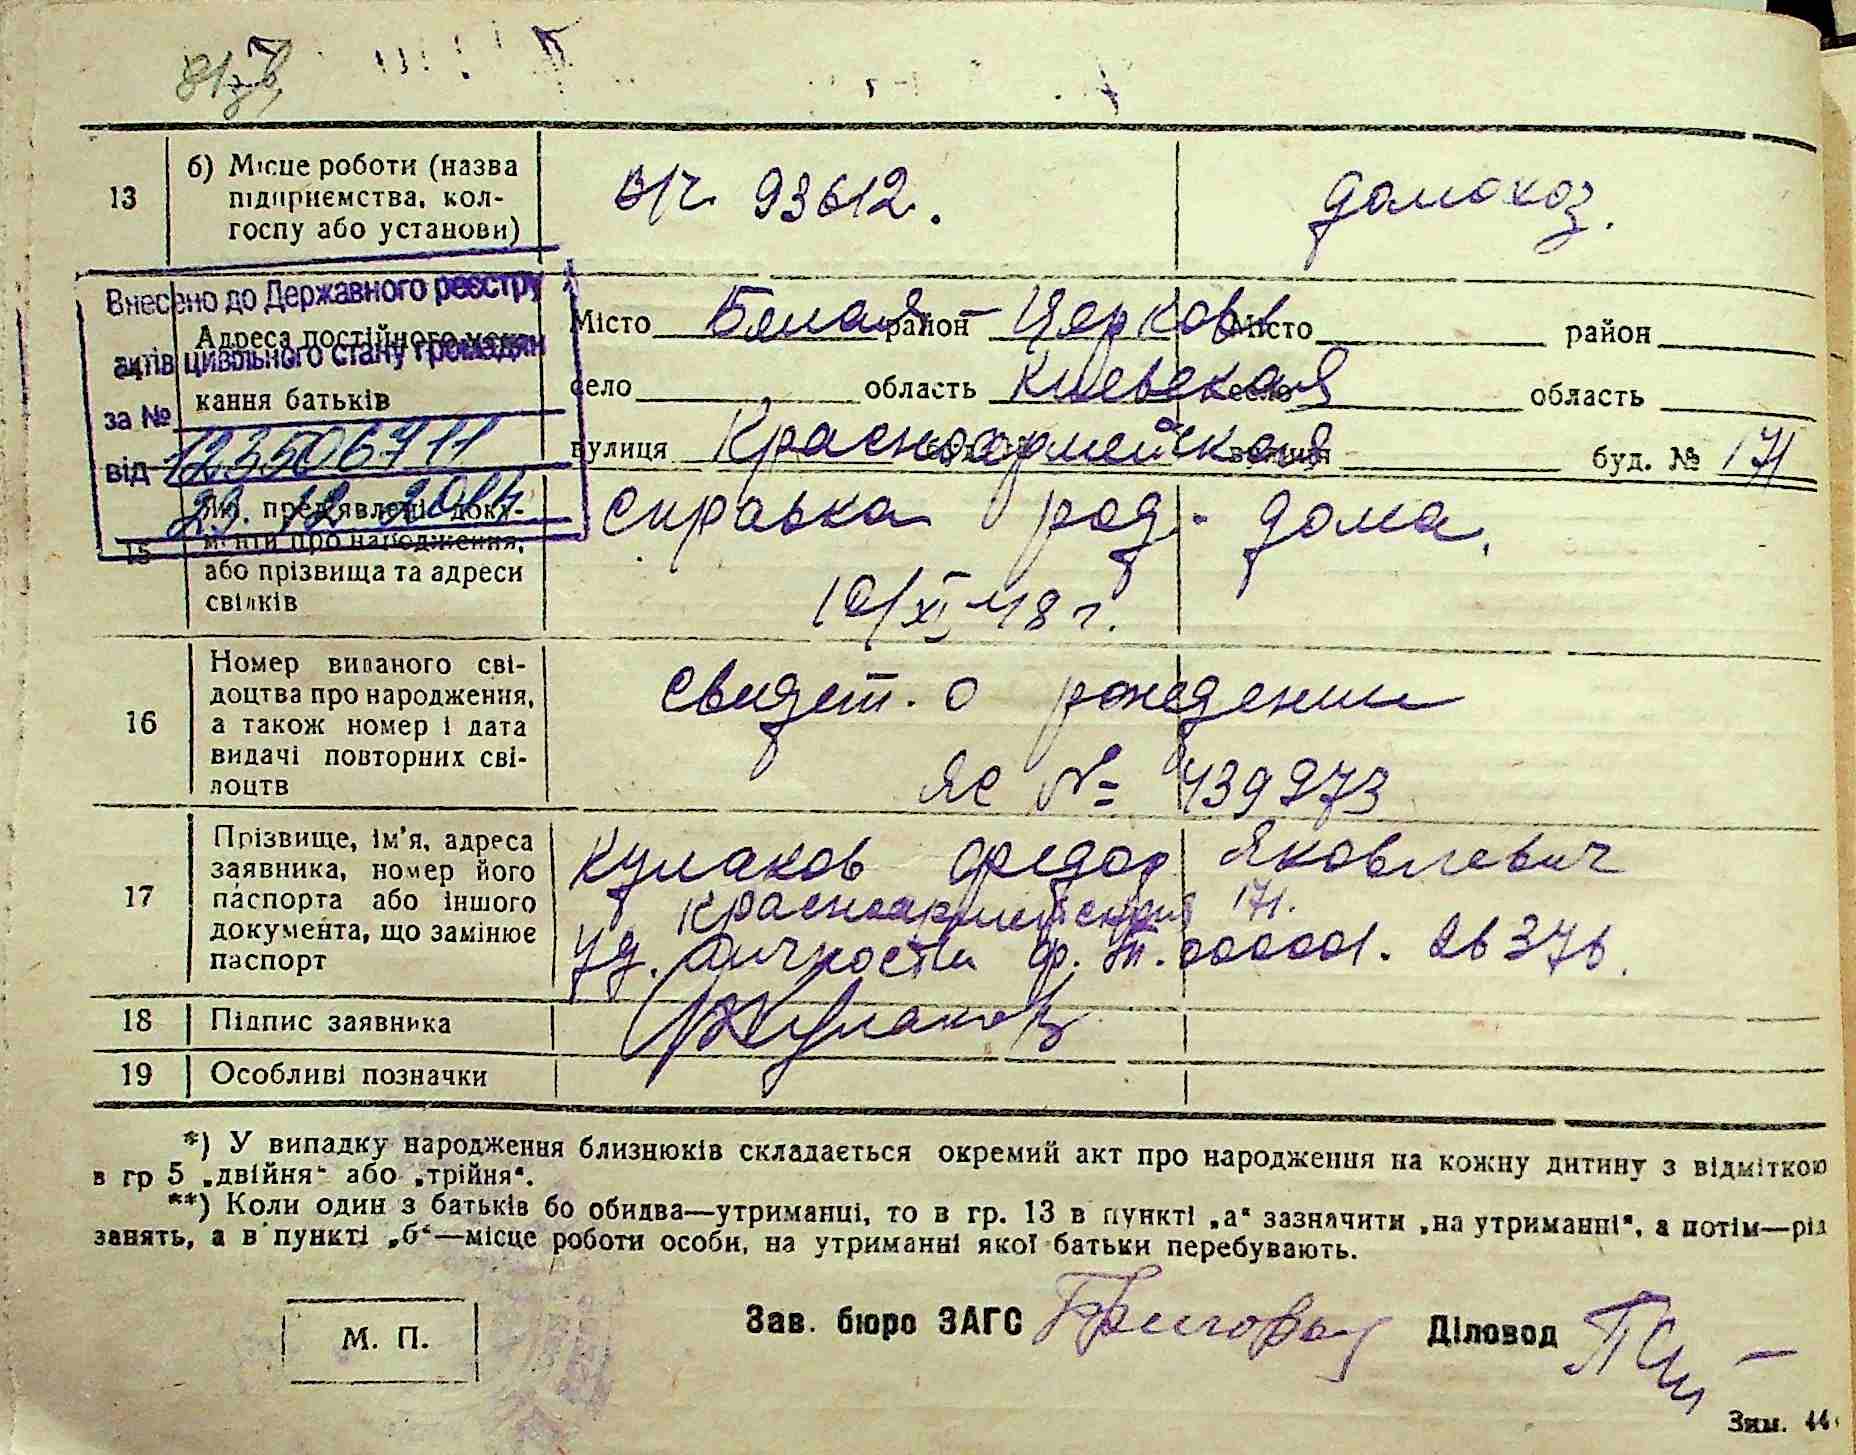 13
б) Місце роботи (назва
підприємства, кол-
госпу або установи)
в/ч. 93612.
домохоз.
Внесено до Державного реєстру
актів цивільного стану громадян
за №
123506711
від
23 12 20
Адреса постійного меш-
кання батьків
Місто Белая район Церковь Місто район
село область Киевская село область
вулиця Красноармейская вулиця буд. № 171
15
Які пред'явлені доку-
менти про народження,
або прізвища та адреси
свідків
Справка род. дома.
10/XI 48 г.
16
Номер виданого сві-
доцтва про народження,
а також номер і дата
видачі повторних сві-
доцтв
Свидет. о рождении
ЯС № 439973
17
Прізвище, ім'я, адреса
заявника, номер його
паспорта або іншого
документа, що замінює
паспорт
Кулаков Федор Яковлевич
Красноармейская 171.
Уд. личности ф. Т. 000001. 26376.
18
Підпис заявника
Кулаков
19
Особливі позначки
*) У випадку народження близнюків складається окремий акт про народження на кожну дитину з відміткою
в гр 5 „двійня“ або „трійня“.
**) Коли один з батьків бо обидва—утриманці, то в гр. 13 в пункті „а“ зазначити „на утриманні“, а потім—рід
занять, а в пункті „б“—місце роботи особи, на утриманні якої батьки перебувають.
М. П.
Зав. бюро ЗАГС
Діловод
Зам. 44